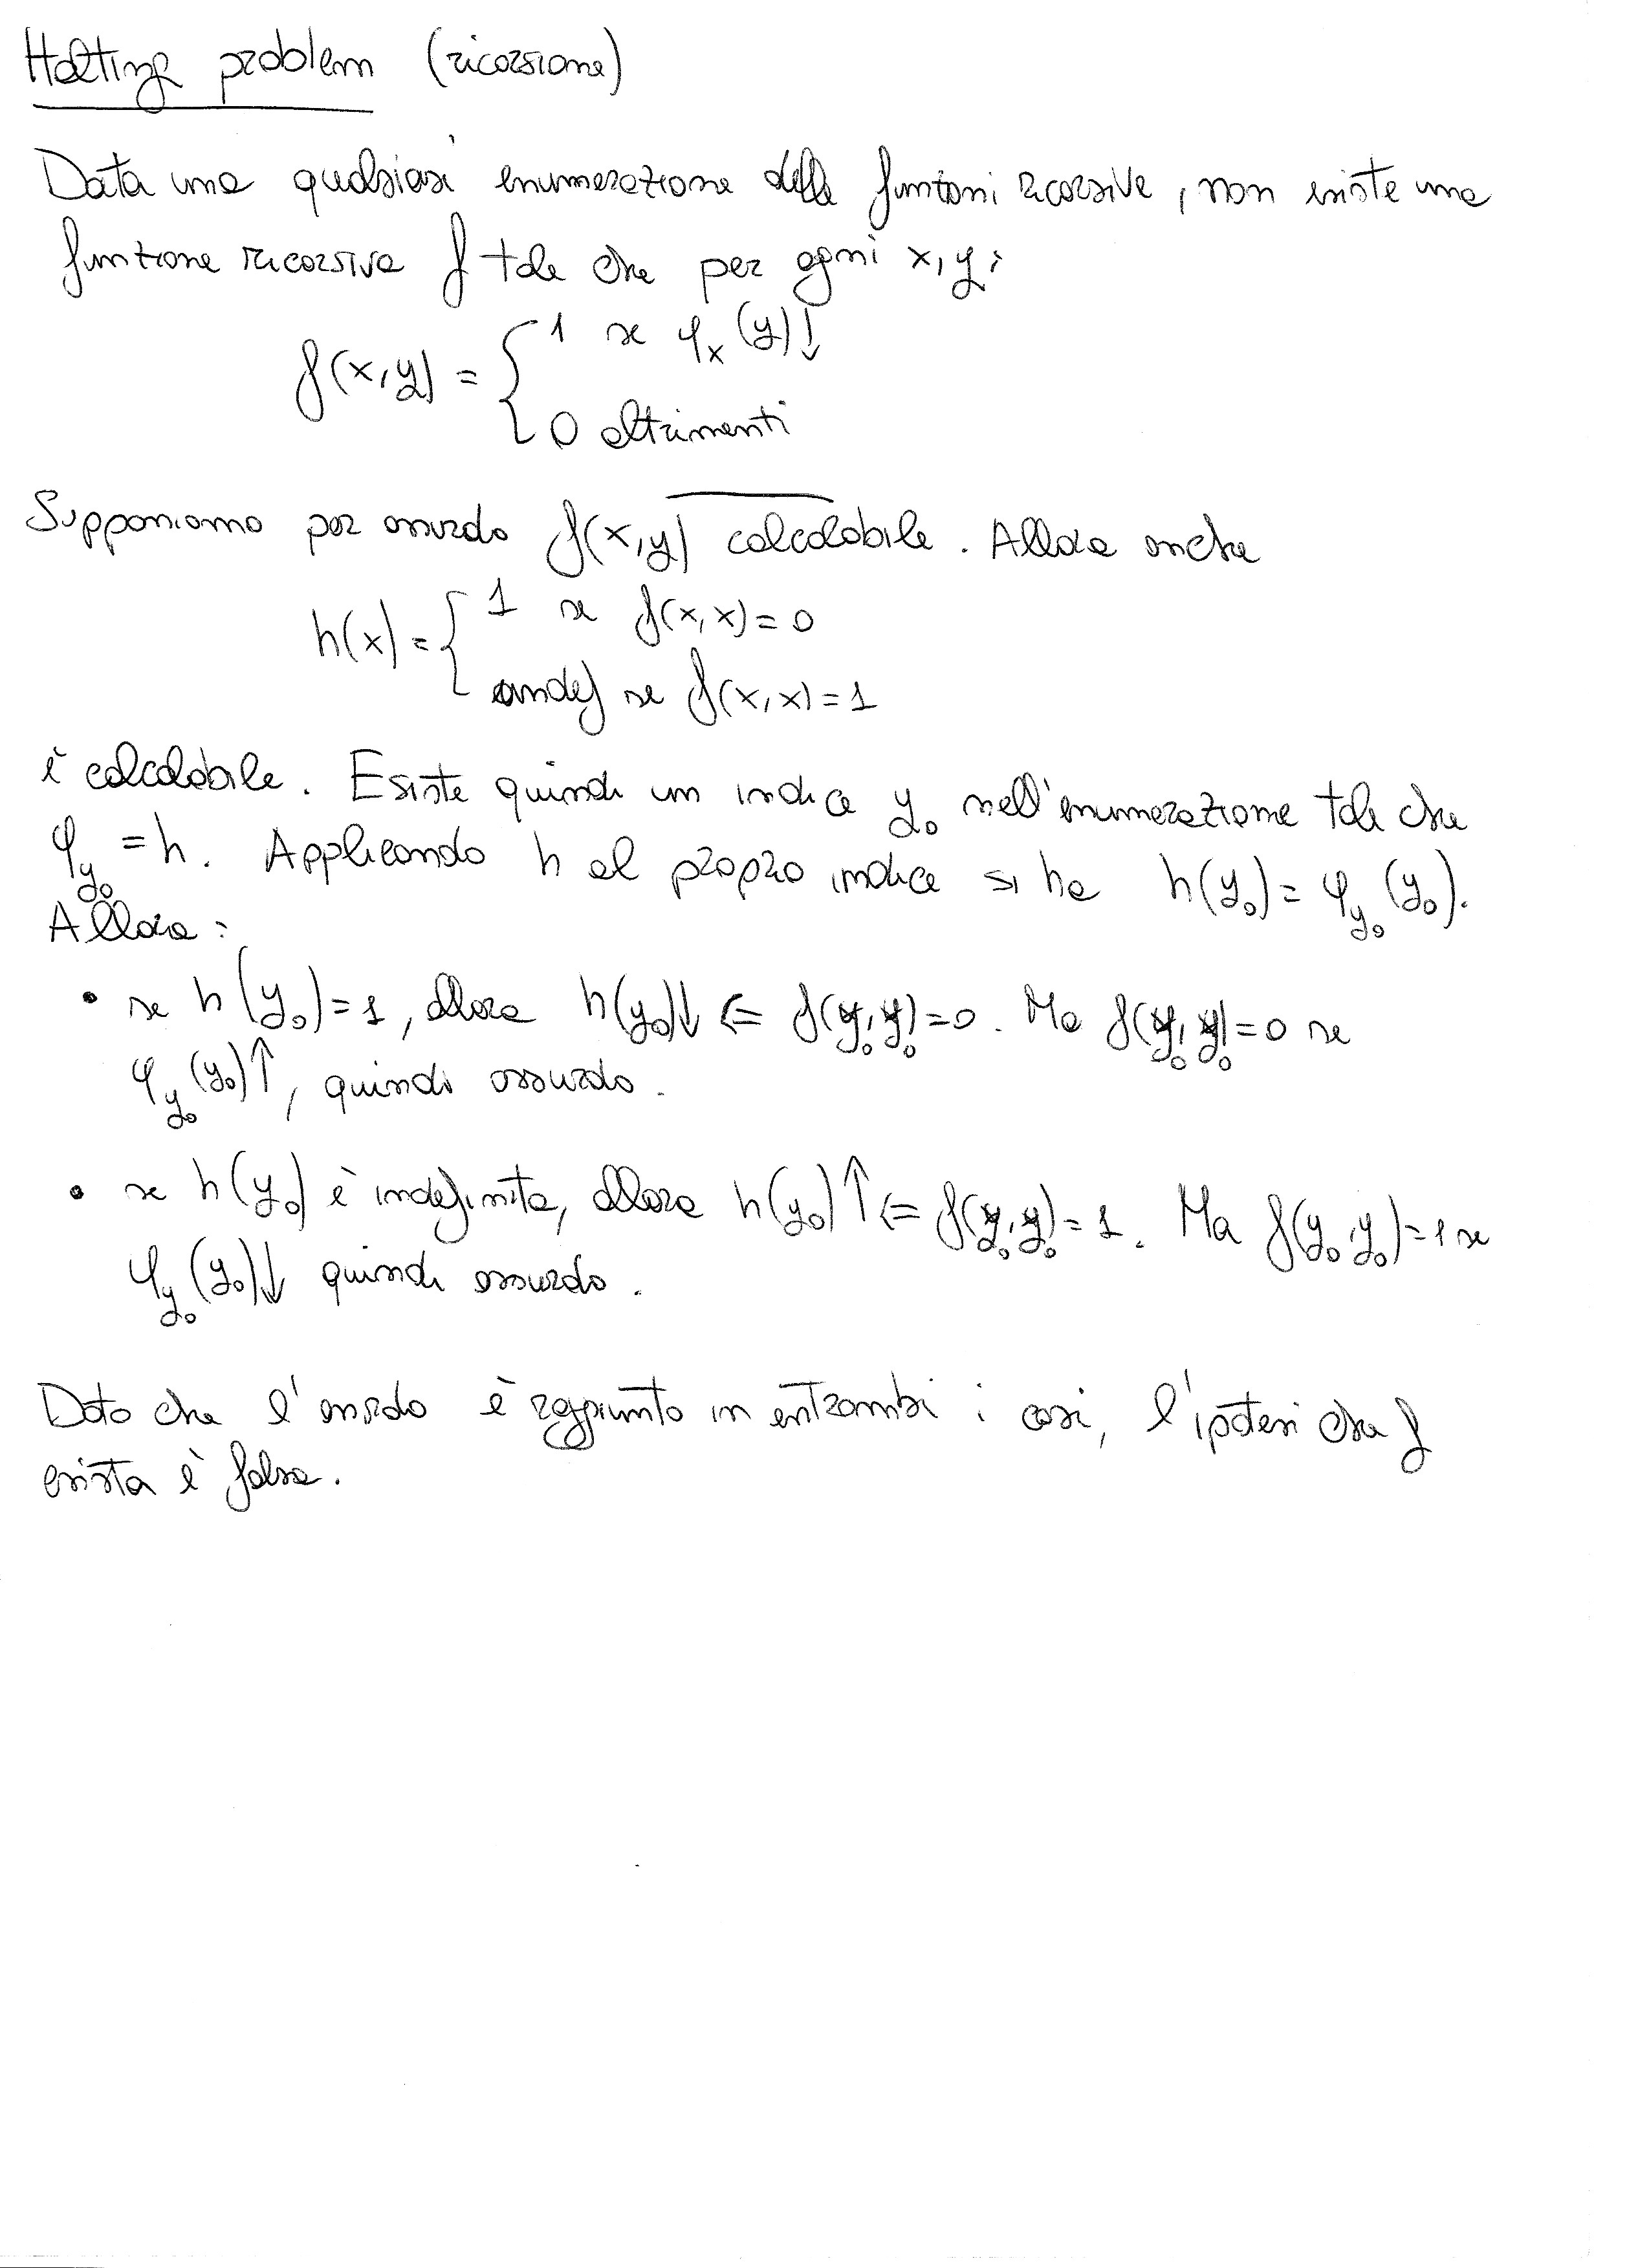 Halting problem (ricorsione)
Data una qualsiasi enumerazione delle funzioni ricorsive, non esiste una
funzione ricorsiva f tale che per ogni x, y:
f(x,y) = { 1 se φ_x(y)↓
0 altrimenti
Supponiamo per assurdo f(x,y) calcolabile. Allora anche
h(x) = { 1 se f(x,x) = 0
indef se f(x,x) = 1
è calcolabile. Esiste quindi un indice y₀ nell'enumerazione tale che
φ_y₀ = h. Applicando h al proprio indice si ha h(y₀) = φ_y₀(y₀).
Allora:
• se h(y₀) = 1, allora h(y₀)↓ ⇐ f(y₀,y₀) = 0. Ma f(y₀,y₀) = 0 se
φ_y₀(y₀)↑, quindi assurdo.
• se h(y₀) è indefinita, allora h(y₀)↑ ⇐ f(y₀,y₀) = 1. Ma f(y₀,y₀) = 1 se
φ_y₀(y₀)↓ quindi assurdo.
Dato che l'assurdo è raggiunto in entrambi i casi, l'ipotesi che f
esista è falsa.